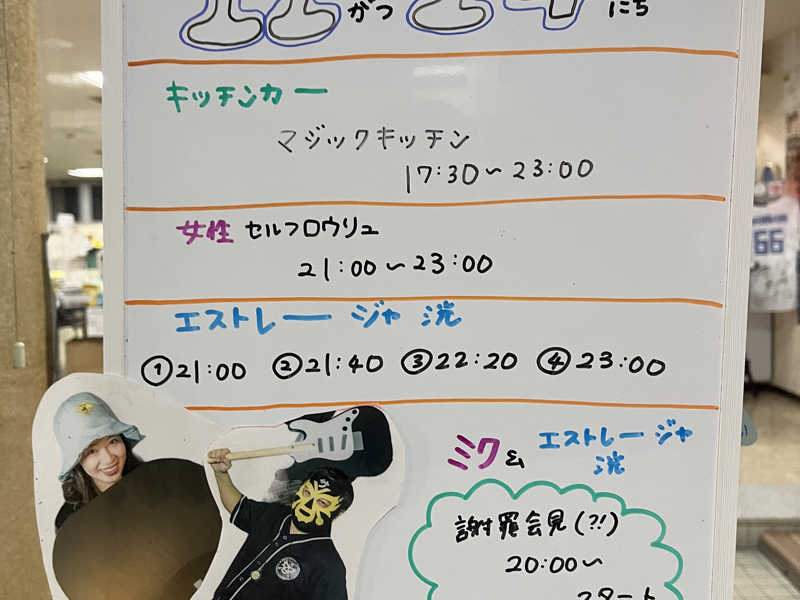 11がつ24にち
キッチンカー
マジックキッチン
17:30～23:00
女性 セルフロウリュ
21:00～23:00
エストレージャ 洸
①21:00 ②21:40 ③22:20 ④23:00
ミク& エストレージャ
洸
謝罪会見(?!)
20:00～
スタート
66